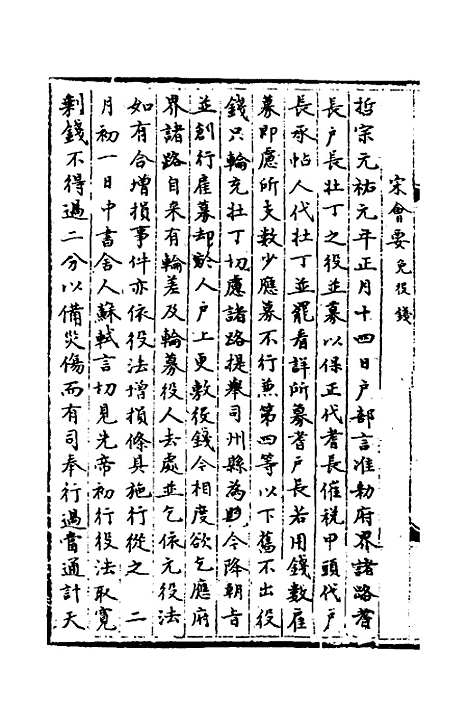 宋會要 免役錢
哲宗元祐元年正月十四日戶部言准勅府界諸路耆
長戶長壯丁之役並募以保正代耆長催稅甲頭代戶
長承帖人代壯丁並罷看詳所募耆戶長若用錢數雇
募即慮所支數少應募不行兼第四等以下舊不出役
錢只輪充壯丁切慮諸路提舉司州縣為見今降朝旨
並創行雇募却於人戶上更敷役錢今相度欲乞應府
界諸路自來有輪差及輪募役人去處並乞依元役法
如有合增損事件亦依役法增損條具施行從之 二
月初一日中書舍人蘇軾言切見先帝初行役法取寬
剩錢不得過二分以備災傷而有司奉行過當通計天